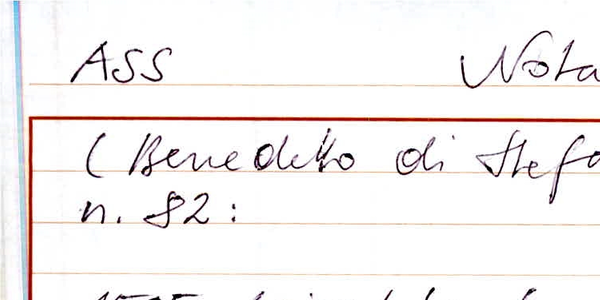 ASS Nota
( Benedetto di Stefa
n. 82 :